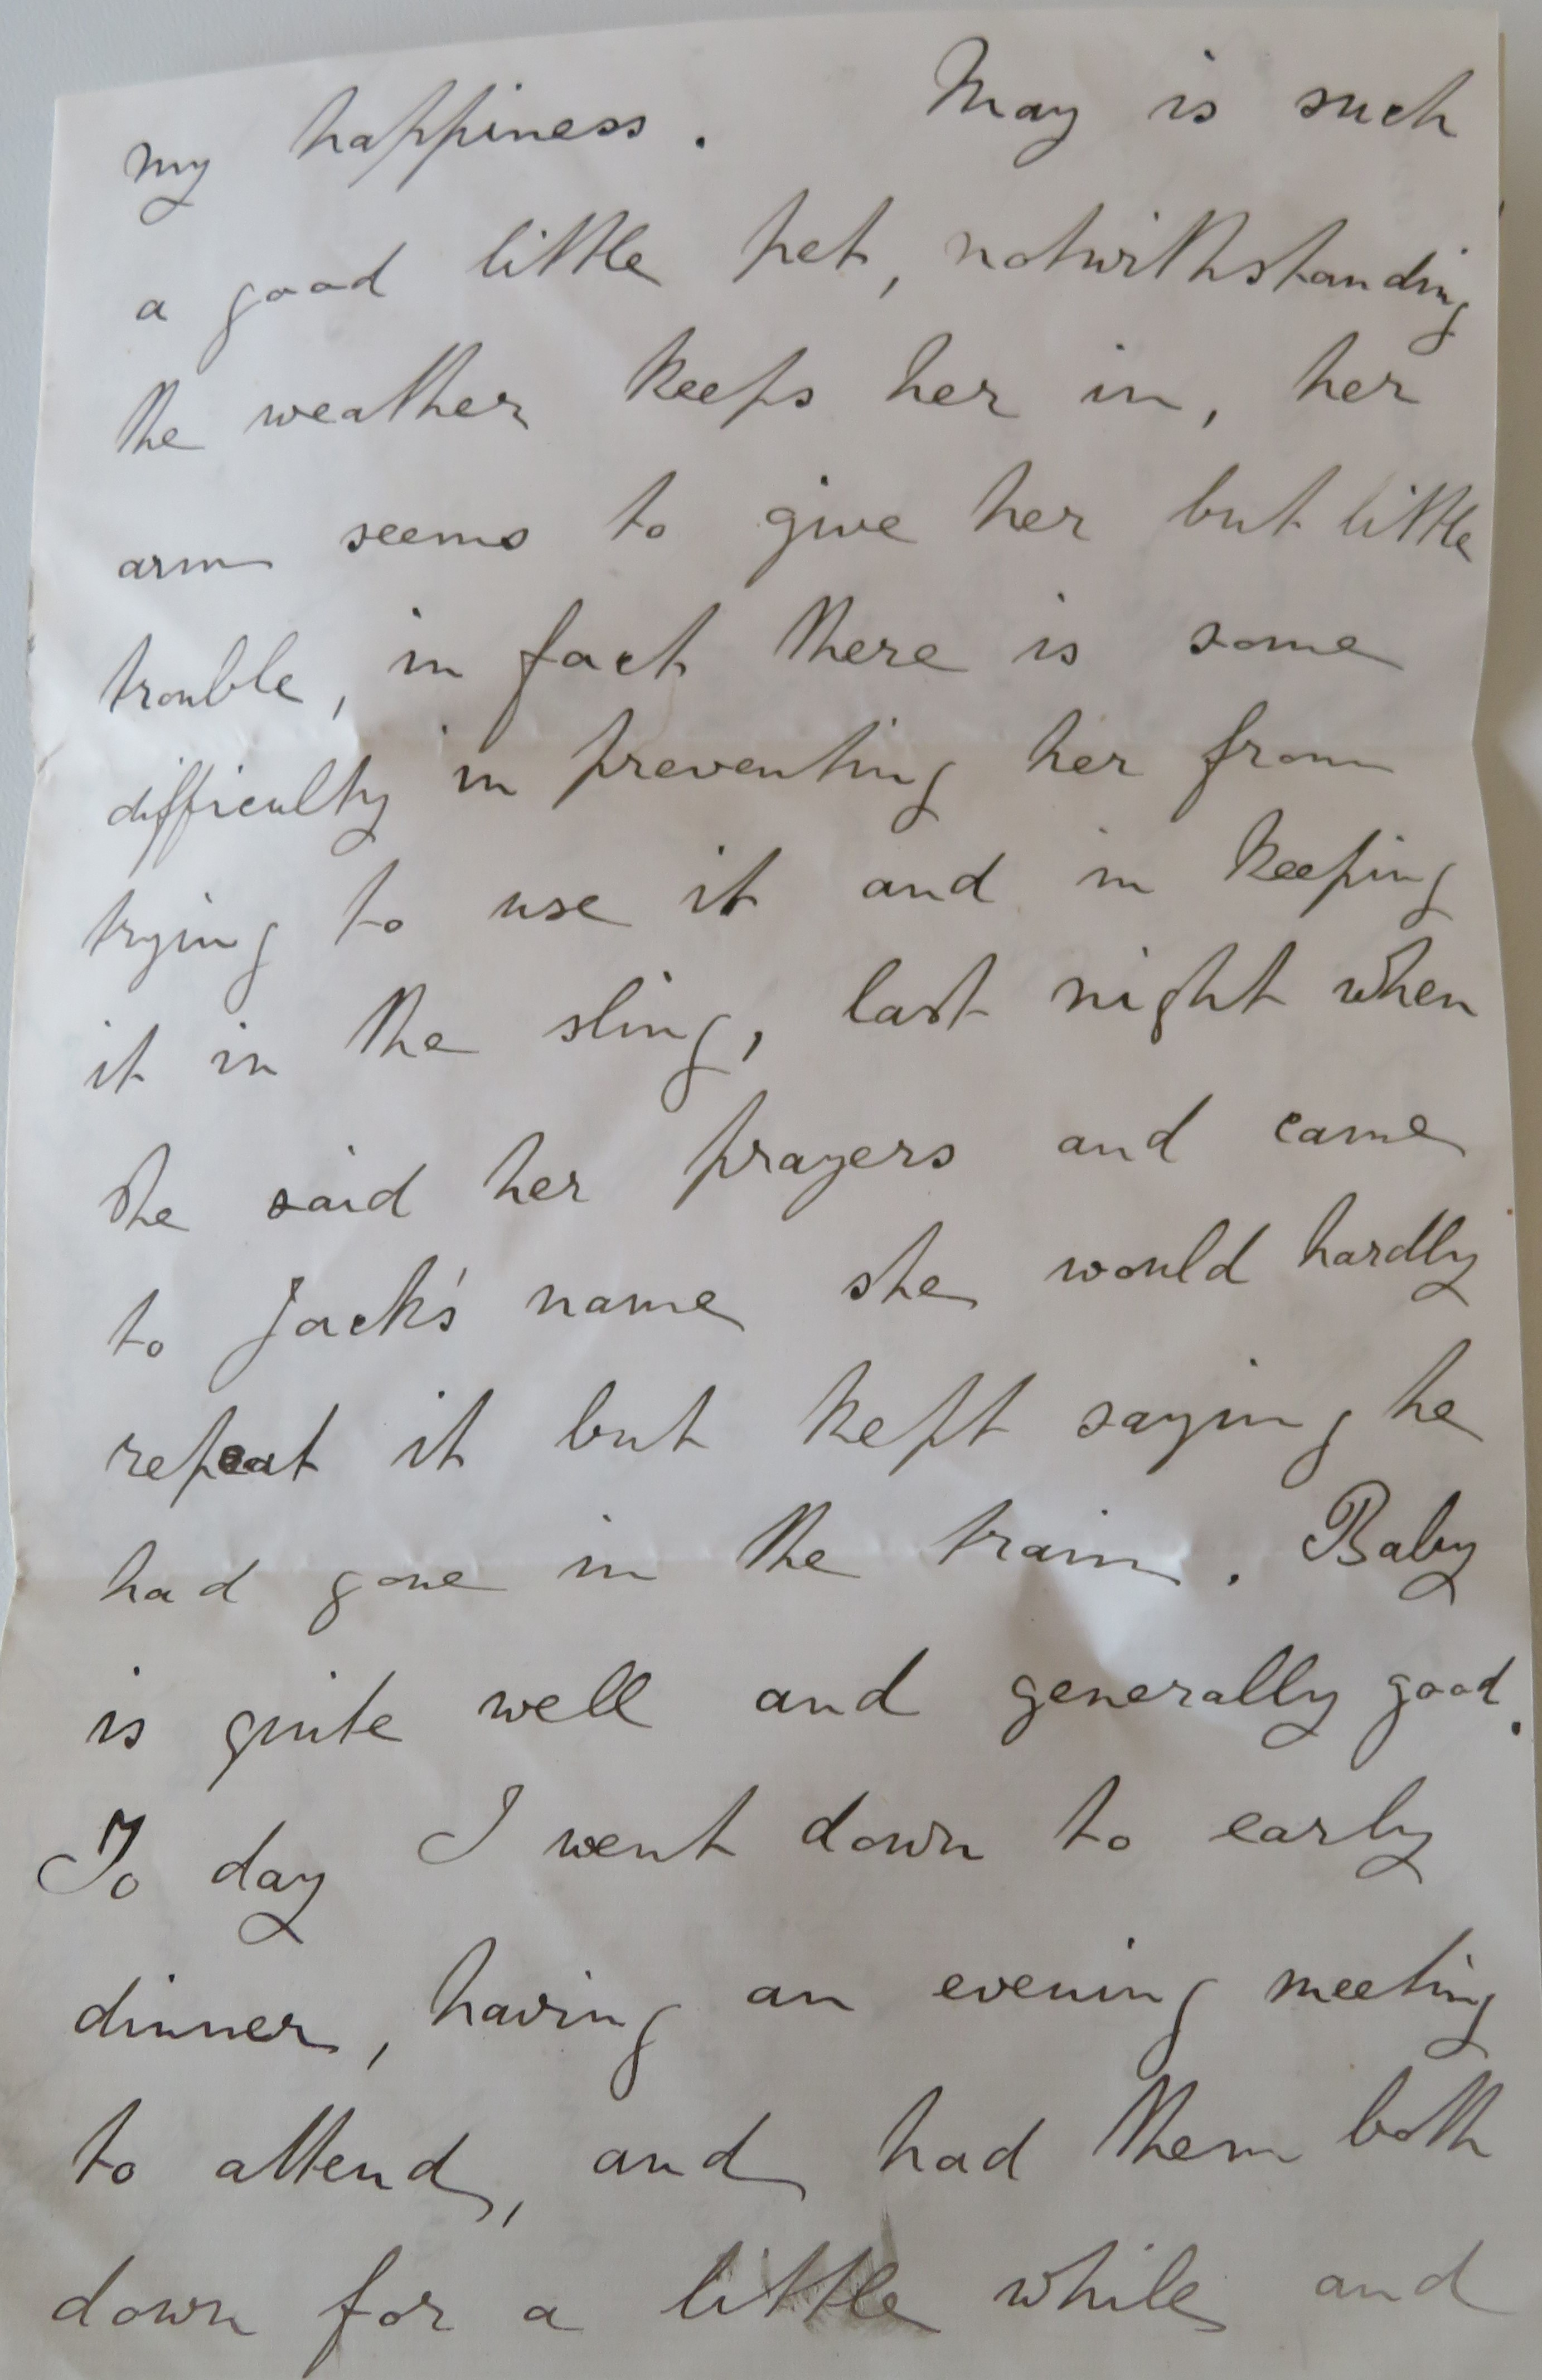 my happiness. May is such
a good little pet, notwithstanding
the weather keeps her in, her
arm seems to give her but little
trouble, in fact there is some
difficulty in preventing her from
trying to use it and in keeping
it in the sling, last night when
she said her prayers and came
to Jack's name she would hardly
repeat it but kept saying he
had gone in the train. Baby
is quite well and generally good.
To day I went down to early
dinner, having an evening meeting
to attend, and had them both
down for a little while and